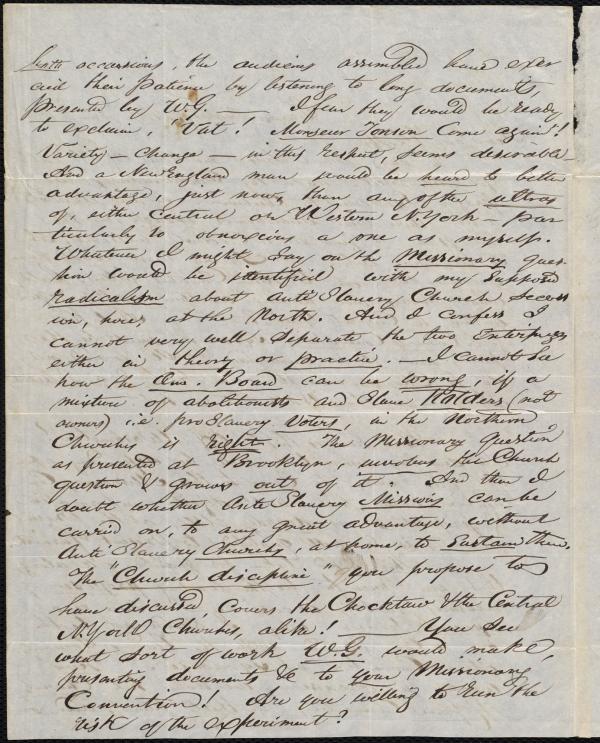 both occasions, the audiences assembled have exer
cised their patience by listening to long documents,
presented by W.G. — I fear they would be ready
to exclaim, "Vat! Monsieur Tonson Come again"!
Variety — change — in this respect, seems desirable —
And a New England man would be heard to better
advantage, just now, than any of the ultras
of, either Central or Western N. York — par
ticularly so obnoxious a one as myself.
Whatever I might say on the Missionary ques-
tion would be identified with my supposed
radicalism about Anti Slavery Church secess
ion, here, at the North. And I confess I
cannot very well separate the two Enterprizes
either in theory or practice. — I cannot see
how the Am. Board can be wrong, if a
mixture of abolitionists and Slave Holders (not
owners) i.e. pro Slavery Voters, in the Northern
Churches is right. The Missionary Question,
as presented at Brooklyn, involves the Church
question & grows out of it. And then I
doubt whether Anti Slavery Missions can be
carried on, to any great advantage, without
Anti Slavery Churches, at home, to Sustain them.
The "Church discipline" you propose to
have discussed, Covers the Chocktaw & the Central
N. York Churches, alike! — You see
what sort of work W.G. would make,
presenting documents &c to your Missionary
Convention! Are you willing to run the
risk of the experiment?